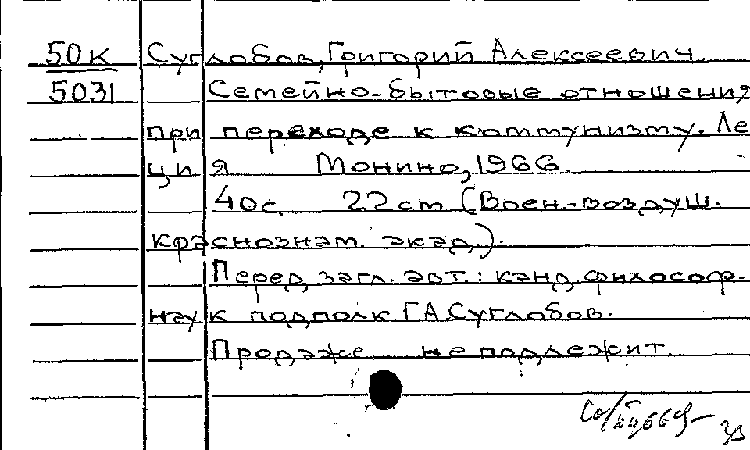 50К Суглобов, Григорий Алексеевич
5031 Семейно-бытовые отношения
при переходе к коммунизму. Ле
ция Монино, 1966.
40с. 22см (Воен.-воздуш.
краснознам. акад.).
Перед загл. авт.: канд. философ.
наук подполк Г.А.Суглобов.
Продаже не подлежит.